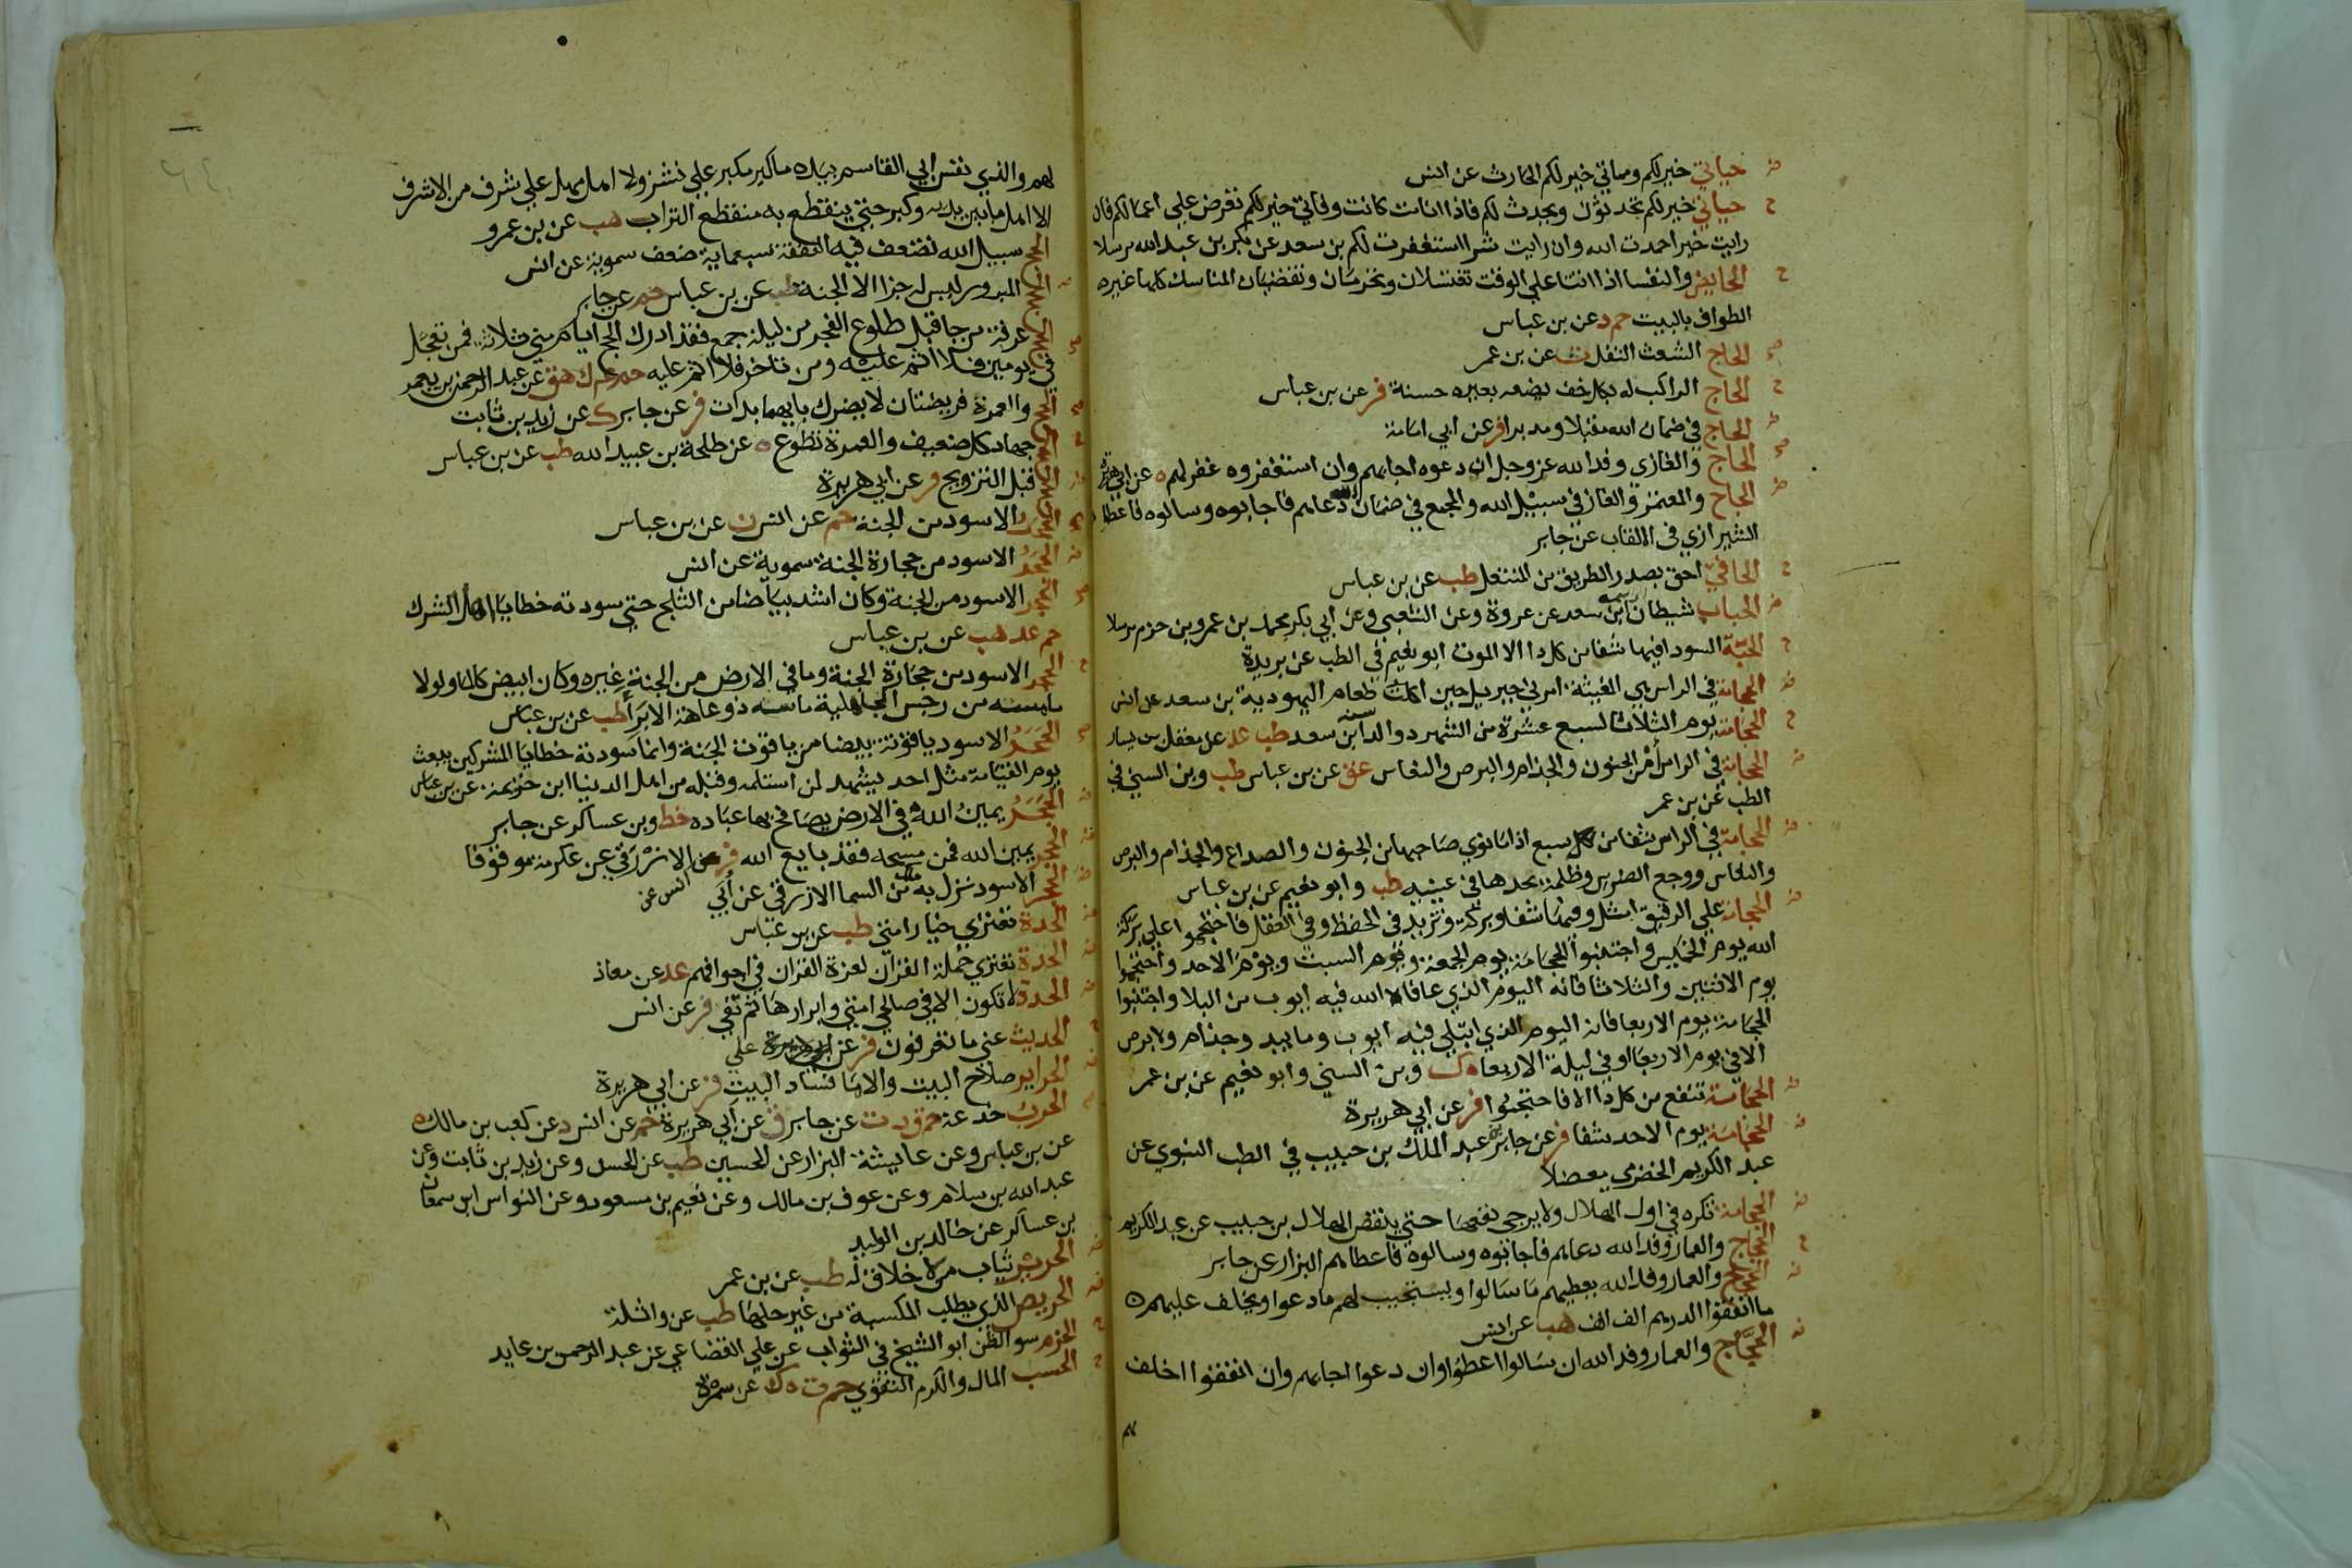 حياتي خير لكم ومماتي خير لكم الحارث عن انس
حياتي خير لكم تحدثون ويحدث لكم فاذا انا مت كانت وفاتي خير لكم تعرض علي اعمالكم فان
رايت خيرا حمدت الله وان رايت شرا استغفرت لكم بن سعد عن بكر بن عبد الله مرسلا
الحايض والنفسا اذا اتتا علي الوقت تغتسلان وتحرمان وتقضيان المناسك كلها غير
الطواف بالبيت حم د عن بن عباس
الحاج الشعث التفل ت عن بن عمر
الحاج الراكب له بكل خف يضعه بعيره حسنة فر عن بن عباس
الحاج في ضمان الله مقبلا ومدبرا فر عن ابي امامة
الحاج والغازي وفد الله عز وجل ان دعوه اجابهم وان استغفروه غفر لهم ه عن ابي هريرة
الحاج والمعتمر والغاز في سبيل الله والمجمع في ضمان الله دعاهم فاجابوه وسالوه فاعطا
الشيرازي في الالقاب عن جابر
الحافي احق بصدر الطريق من المنتعل طب عن بن عباس
الحباب شيطان ابن سعد عن عروة وعن الشعبي وعن ابي بكر محمد بن عمرو بن حزم مرسلا
الحبة السودا فيها شفا من كل دا الا الموت ابو نعيم في الطب عن بريدة
الحجامة في الراس هي المغيثة امرني جبريل حين اكلت طعام اليهودية بن سعد عن انس
الحجامة يوم الثلاثا لسبع عشرة من الشهر دوا لدا سنة ابن سعد طب عد عن معقل بن يسار
الحجامة في الراس من الجنون والجذام والبرص والنعاس عق عن بن عباس طب وبن السني في
الطب عن بن عمر
الحجامة في الراس شفا من سبع اذا ما نوي صاحبها من الجنون والصداع والجذام والبرص
والنعاس ووجع الضرس وظلمة يجدها في عينيه طب وابو نعيم عن بن عباس
الحجامة علي الريق امثل وفيها شفا وبركة وتزيد في الحفظ وفي العقل فاحتجموا علي بركة
الله يوم الخميس واجتنبوا الحجامة يوم الجمعة ويوم السبت ويوم الاحد واحتجموا
يوم الاثنين والثلاثا فانه اليوم الذي عافا الله فيه ايوب من البلا واجتنبوا
الحجامة يوم الاربعا فانه اليوم الذي ابتلي فيه ايوب وما يبد وجذام ولا برص
الا في يوم الاربعا او في ليلة الاربعا ه ك وبن السني وابو نعيم عن بن عمر
الحجامة تنفع من كل دا الا فاحتجموا فر عن ابي هريرة
الحجامة يوم الاحد شفا فر عن جابر عبد الملك بن حبيب في الطب النبوي عن
عبد الكريم الحضرمي معضلا
الحجامة تكره في اول الهلال ولا يرجي نفعها حتي ينقص الهلال بن حبيب عن عبد الكريم
الحجاج والعمار وفد الله دعاهم فاجابوه وسالوه فاعطاهم البزار عن جابر
الحجاج والعمار وفد الله يعطيهم ما سالوا ويستجيب لهم ما دعوا ويخلف عليهم
ما انفقوا الدرهم الف الف هب عن انس
الحجاج والعمار وفد الله ان سالوا اعطوا وان دعوا اجابهم وان انفقوا اخلف
لهم والذي نفس ابي القاسم بيده ما كبر مكبر علي نشز ولا اهل مهل علي شرف من الاشرف
الا اهل ما بين يديه وكبر حتي ينقطع به منقطع التراب هب عن بن عمرو
الحج سبيل الله تضعف فيه النفقة سبعماية ضعف سموية عن انس
الحج المبرور ليس له جزا الا الجنة طب عن بن عباس حم عن جابر
الحج عرفة من جا قبل طلوع الفجر من ليلة جمع فقد ادرك الحج ايام مني ثلاثة فمن تعجل
في يومين فلا اثم عليه ومن تاخر فلا اثم عليه حم ك هق عن عبد الرحمن بن يعمر
الحج والعمرة فريضتان لا يضرك بايهما بدات فر عن جابر ك عن زيد بن ثابت
الحج جهاد كل ضعيف والعمرة تطوع ه عن طلحة بن عبيد الله طب عن بن عباس
الحج قبل التزويج فر عن ابي هريرة
الحجر الاسود من الجنة حم عن انس ن عن بن عباس
الحجر الاسود من حجارة الجنة سموية عن انس
الحجر الاسود من الجنة وكان اشد بياضا من الثلج حتي سودته خطايا اهل الشرك
حم عد هب عن بن عباس
الحجر الاسود من حجارة الجنة وما في الارض من الجنة غيره وكان ابيض كالماء ولولا
ما مسه من رجس الجاهلية ما مسه ذو عاهة الا برا طب عن بن عباس
الحجر الاسود ياقوتة بيضا من ياقوت الجنة وانما سودته خطايا المشركين يبعث
يوم القيامة مثل احد يشهد لمن استلمه وقبله من اهل الدنيا ابن خزيمة عن بن عباس
الحجر يمين الله في الارض يصافح بها عباده خط وبن عساكر عن جابر
الحجر يمين الله فمن مسحه فقد بايع الله فر عن انس الازرقي عن عكرمة موقوفا
الحجر الاسود نزل به ملك من السما الازرقي عن أبي
الحدة تعتري خيار امتي طب عن بن عباس
الحدة تعتري حملة القران لعزة القران في اجوافهم عد عن معاذ
الحدة لا تكون الا في صالحي امتي وابرارها ثم تفي فر عن انس
الحديث عني ما تعرفون فر عن علي
الحراير صلاح البيت والاما فساد البيت فر عن ابي هريرة
الحرب خدعة حم ق د ت عن جابر ق عن ابي هريرة حم عن انس د عن كعب بن مالك ه
عن بن عباس وعن عايشة البزار عن الحسين طب عن الحسن وعن زيد بن ثابت وعن
عبد الله بن سلام وعن عوف بن مالك وعن نعيم بن مسعود وعن النواس ابن سمعان
بن عساكر عن خالد بن الوليد
الحرير ثياب من لا خلاق له طب عن بن عمر
الحريص الذي يطلب المكسبة من غير حلها طب عن واثلة
الحزم سو الظن ابو الشيخ في الثواب عن علي القضاعي عن عبد الرحمن بن عايد
الحسب المال والكرم التقوي حم ت ه ك عن سمرة